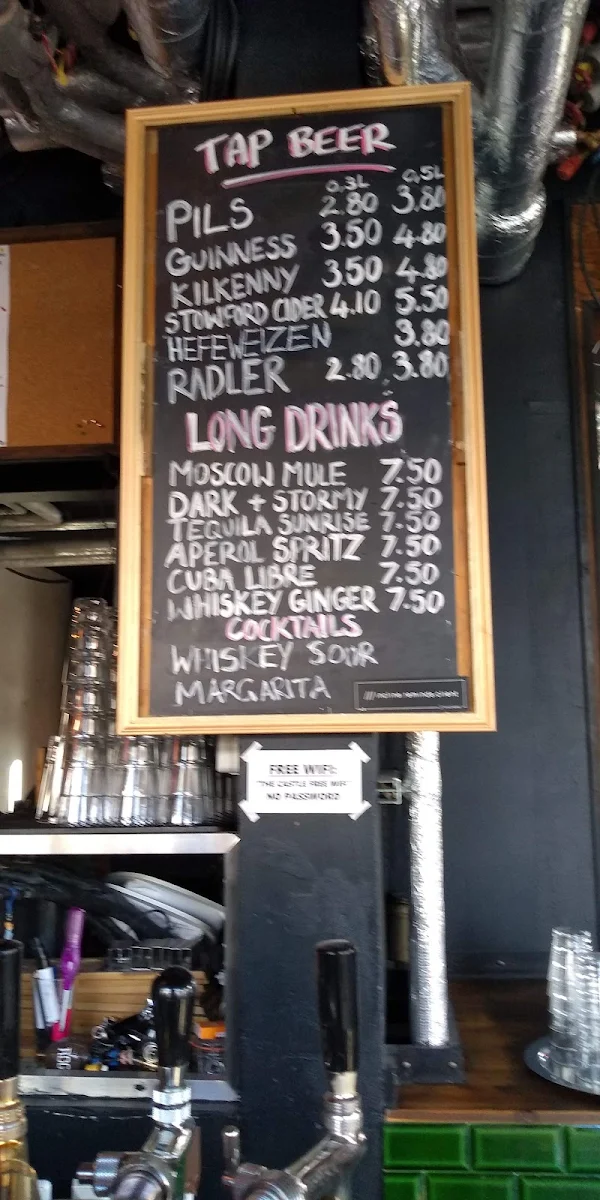 TAP BEER
0,3L 0,5L
PILS 2.80 3.80
GUINNESS 3.50 4.80
KILKENNY 3.50 4.80
STOWFORD CIDER 4.10 5.50
HEFEWEIZEN 3.80
RADLER 2.80 3.80
LONG DRINKS
MOSCOW MULE 7.50
DARK + STORMY 7.50
TEQUILA SUNRISE 7.50
APEROL SPRITZ 7.50
CUBA LIBRE 7.50
WHISKEY GINGER 7.50
COCKTAILS
WHISKEY SOUR
MARGARITA
FREE WIFI:
"THE CASTLE FREE WIFI"
NO PASSWORD